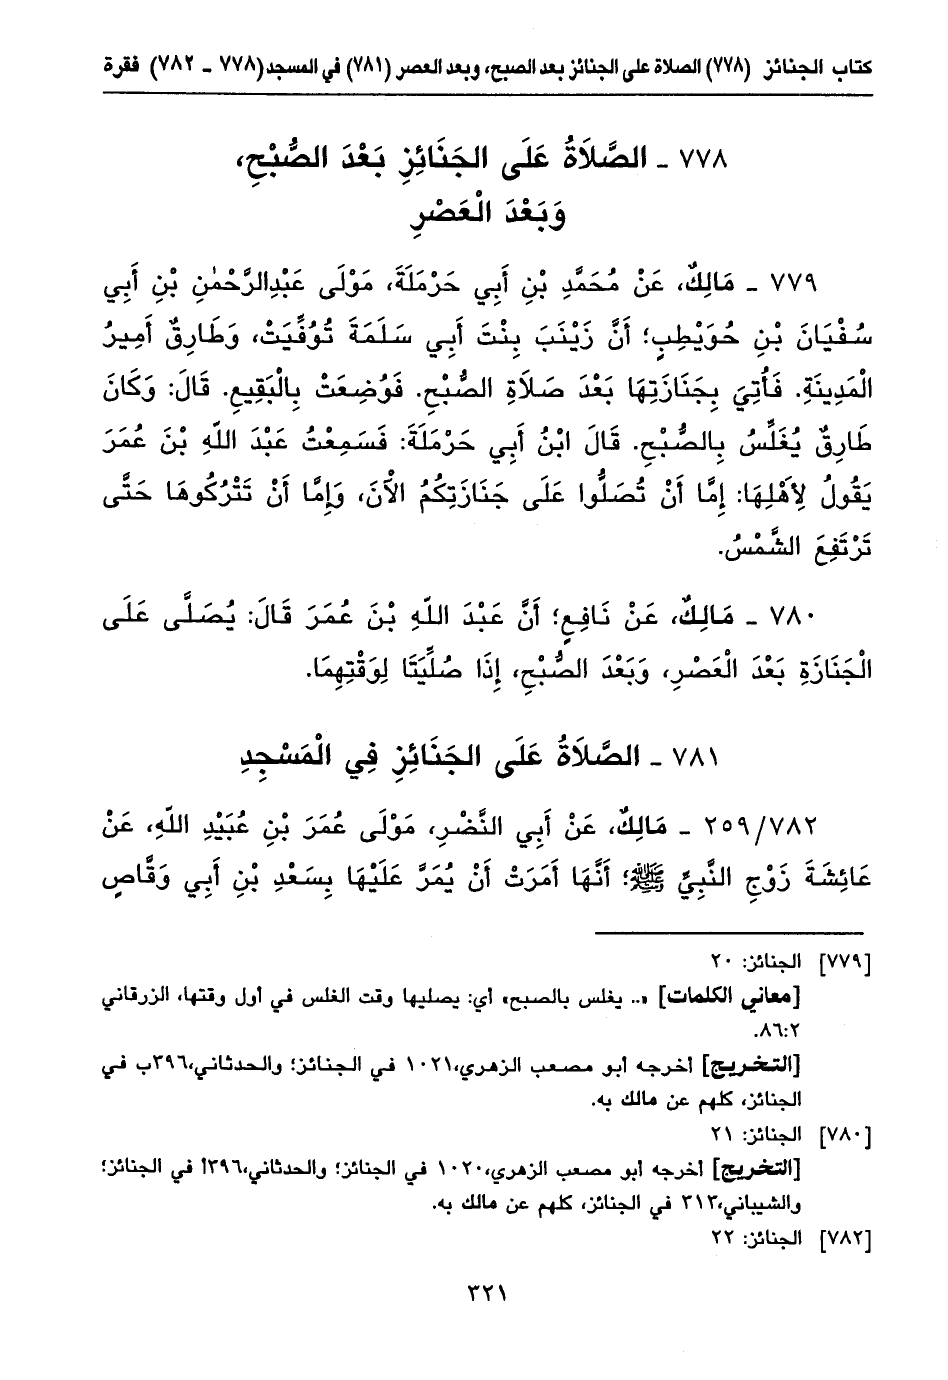 كتاب الجنائز (٧٧٨) الصلاة على الجنائز بعد الصبح، وبعد العصر (٧٨١) في المسجد (٧٧٨ ـ ٧٨٢) فقرة
٧٧٨ ـ الصَّلاَةُ عَلَى الجَنَائِزِ بَعْدَ الصُّبْحِ،
وَبَعْدَ الْعَصْرِ
٧٧٩ ـ مَالِكٌ، عَنْ مُحَمَّدِ بْنِ أَبِي حَرْمَلَةَ، مَوْلَى عَبْدِالرَّحْمٰنِ بْنِ أَبِي
سُفْيَانَ بْنِ حُوَيْطِبٍ؛ أَنَّ زَيْنَبَ بِنْتَ أَبِي سَلَمَةَ تُوُفِّيَتْ، وَطَارِقٌ أَمِيرُ
الْمَدِينَةِ. فَأُتِيَ بِجَنَازَتِهَا بَعْدَ صَلاَةِ الصُّبْحِ. فَوُضِعَتْ بِالْبَقِيعِ. قَالَ: وَكَانَ
طَارِقٌ يُغَلِّسُ بِالصُّبْحِ. قَالَ ابْنُ أَبِي حَرْمَلَةَ: فَسَمِعْتُ عَبْدَ اللّهِ بْنَ عُمَرَ
يَقُولُ لِأَهْلِهَا: إِمَّا أَنْ تُصَلُّوا عَلَى جَنَازَتِكُمُ الْآنَ، وَإِمَّا أَنْ تَتْرُكُوهَا حَتَّى
تَرْتَفِعَ الشَّمْسُ.
٧٨٠ ـ مَالِكٌ، عَنْ نَافِعٍ؛ أَنَّ عَبْدَ اللّهِ بْنَ عُمَرَ قَالَ: يُصَلَّى عَلَى
الْجَنَازَةِ بَعْدَ الْعَصْرِ، وَبَعْدَ الصُّبْحِ، إِذَا صُلِّيَتَا لِوَقْتِهِمَا.
٧٨١ ـ الصَّلاَةُ عَلَى الجَنَائِزِ فِي الْمَسْجِدِ
٢٥٩/٧٨٢ ـ مَالِكٌ، عَنْ أَبِي النَّضْرِ، مَوْلَى عُمَرَ بْنِ عُبَيْدِ اللّهِ، عَنْ
عَائِشَةَ زَوْجِ النَّبِيِّ ﷺ؛ أَنَّهَا أَمَرَتْ أَنْ يُمَرَّ عَلَيْهَا بِسَعْدِ بْنِ أَبِي وَقَّاصٍ
[٧٧٩] الجنائز: ٢٠
[معاني الكلمات] «.. يغلس بالصبح» أي: يصليها وقت الغلس في أول وقتها، الزرقاني
٨٦:٢.
[التخريج] أخرجه أبو مصعب الزهري،١٠٢١ في الجنائز؛ والحدثاني،٣٩٦ب في
الجنائز، كلهم عن مالك به.
[٧٨٠] الجنائز: ٢١
[التخريج] أخرجه أبو مصعب الزهري،١٠٢٠ في الجنائز؛ والحدثاني،٣٩٦أ في الجنائز؛
والشيباني،٣١٣ في الجنائز، كلهم عن مالك به.
[٧٨٢] الجنائز: ٢٢
٣٢١